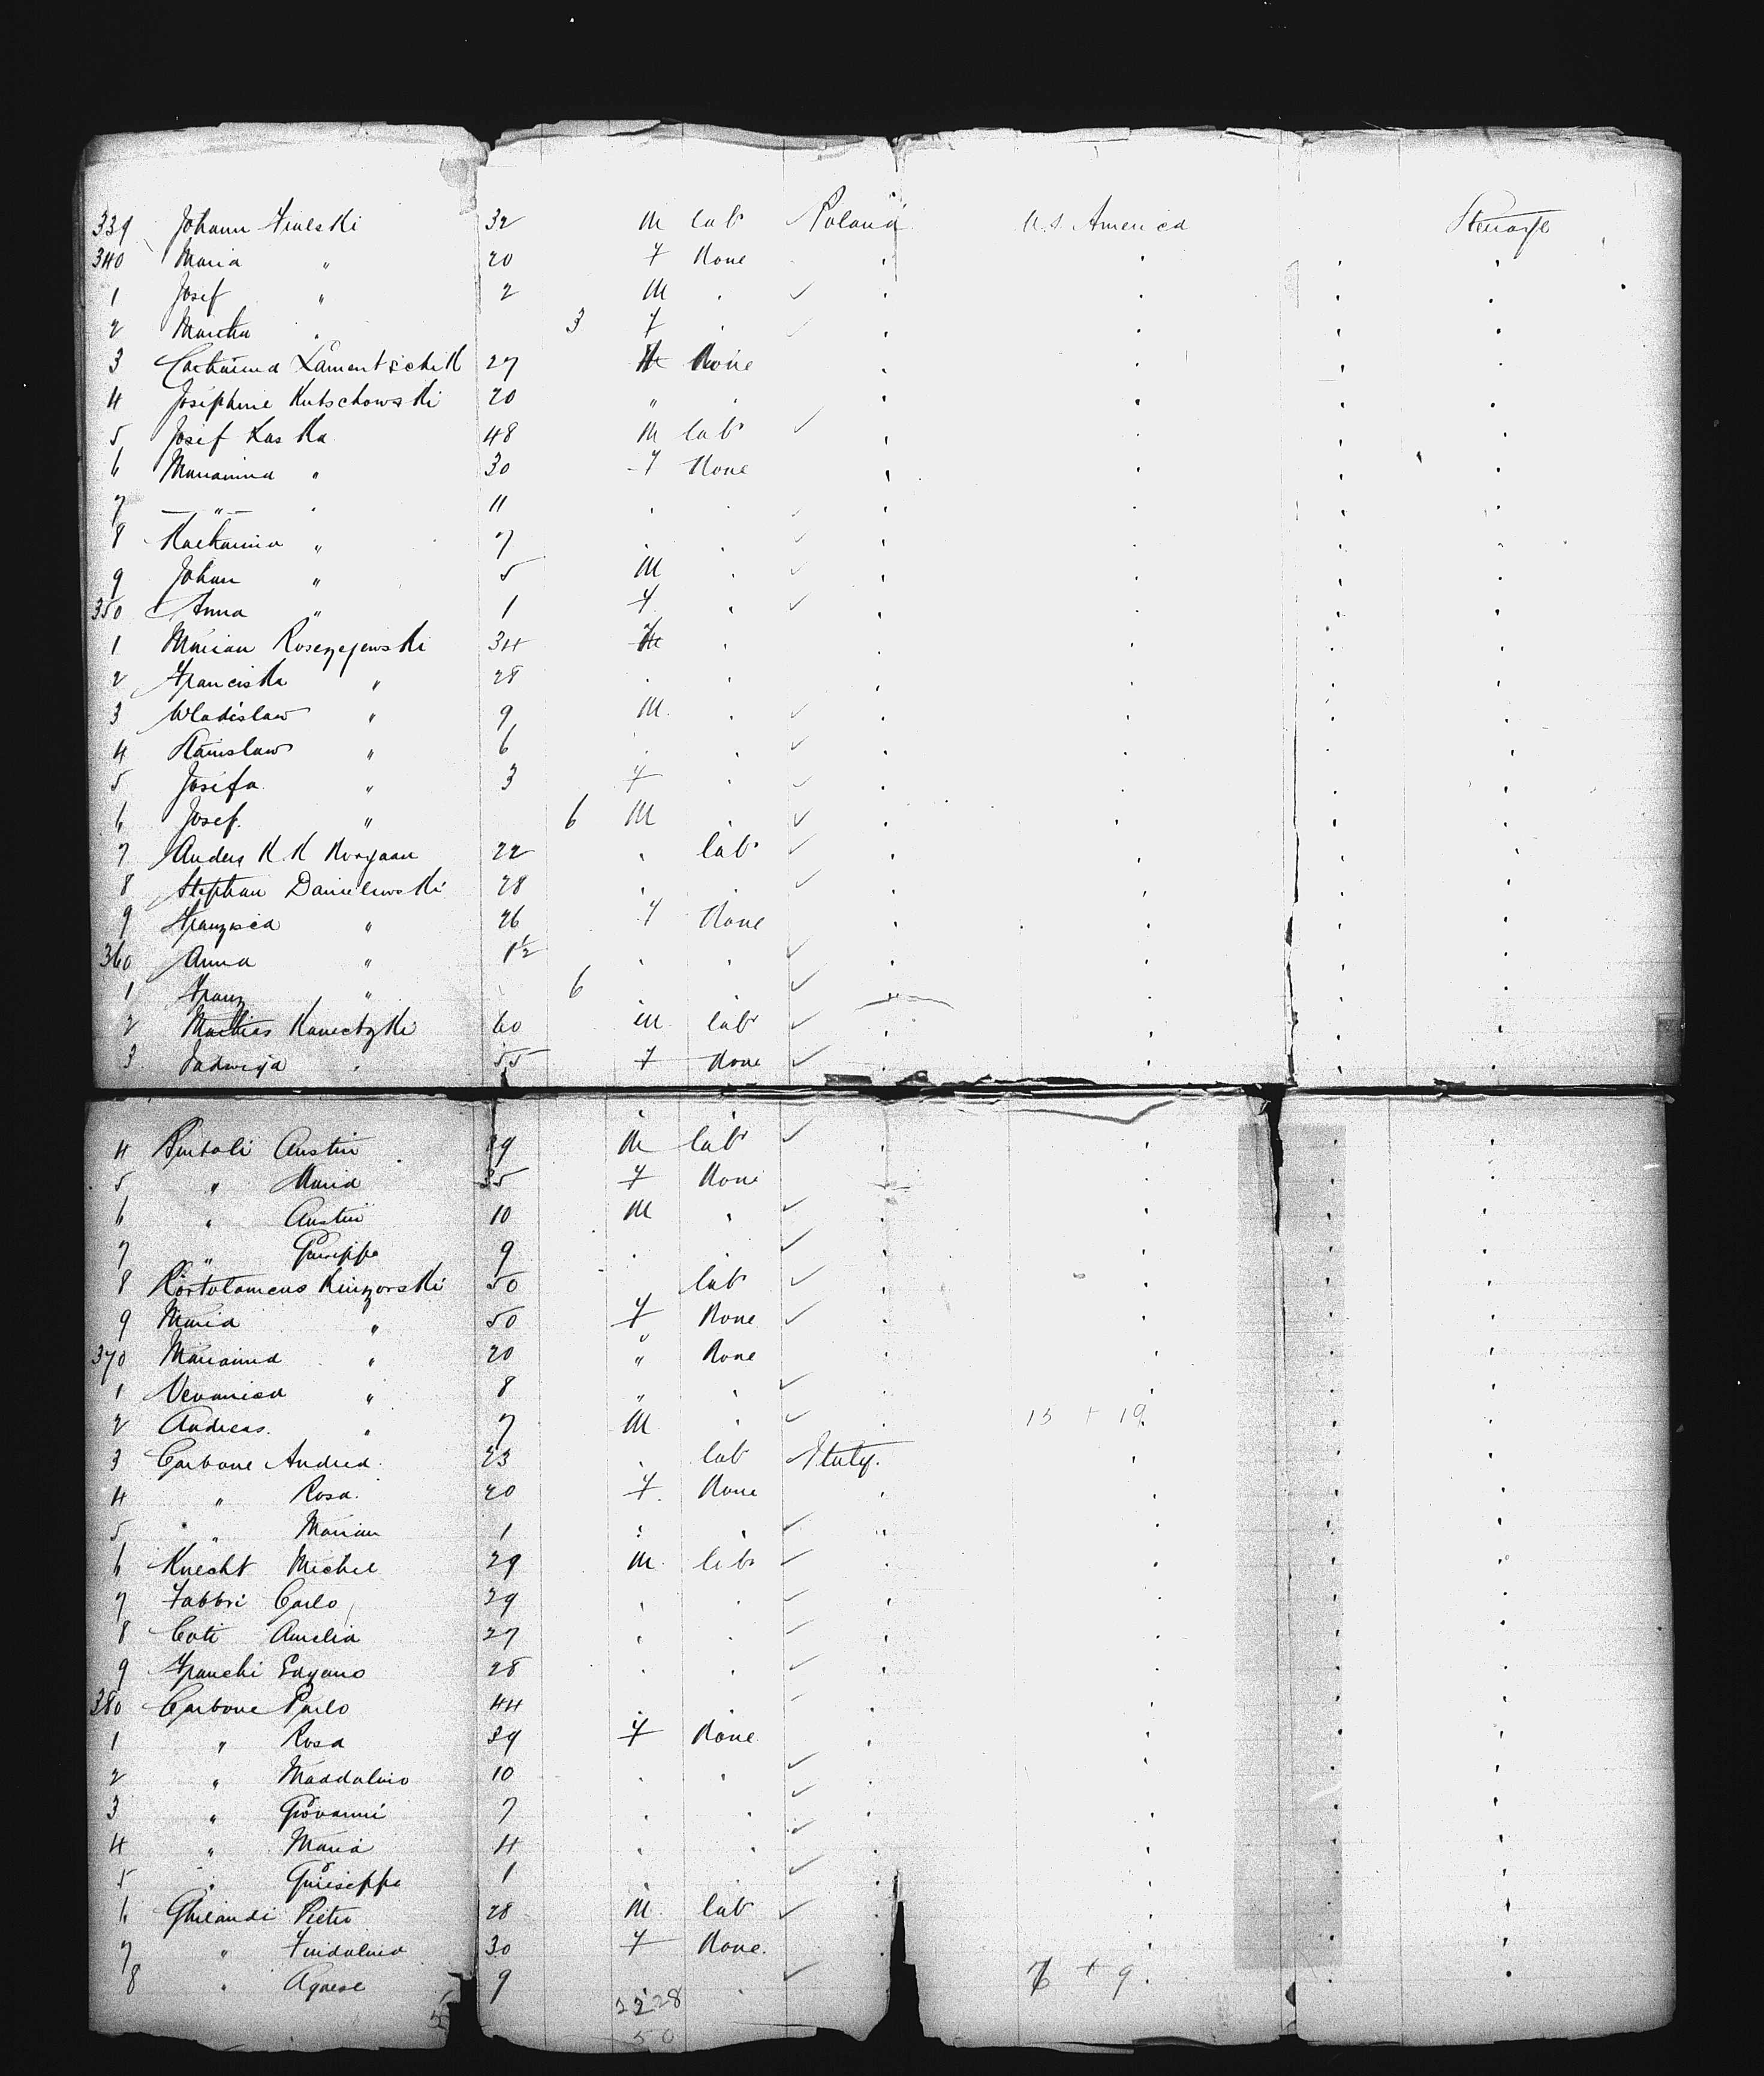 339 Johann Zielski 32 M lab Poland U.S America Steerage
340 Maria " 20 F None
1 Josef " 2 M
2 Martha " 3 F
3 Catharina 27 None
4 Josephine Kutschowski 20 "
5 Josef Laska 48 M lab
6 Marianna " 30 F None
7 — " — 11
8 Katharina " 7
9 Johan " 5 M
350 Anna " 1 F
1 Marian 34
2 Franciska " 28
3 Wladislaw " 9 M
4 Stanislaw " 6
5 Josefa " 3 F
6 Josef " 6 M
7 Anders K. K 22 lab
8 Stephan Danielewski 28
9 Franzisca " 26 F None
360 Anna " 1½
1 Franz " 6
2 Mathias 60 m lab
3 Jadwiga 55 F None
4 Austin 39 M lab
5 " Maria 35 F None
6 " Austin 10 M
7 " Giuseppe 9
8 Bortolomeus 50 lab
9 Maria " 50 F None
370 Marianna " 20 " None
1 Veronica " 8 "
2 Andreas " 7 M 13 + 19
3 Carbone Andrea 23 lab Italy.
4 " Rosa 20 F None
5 " Marian 1
6 Knecht Michel 29 M lab
7 Fabbri Carlo 29
8 Coti Amelia 27
9 Franchi 28
380 Carbone Paolo 44
1 " Rosa 39 F None
2 " Maddalino 10
3 " Giovanni 7
4 " Maria 4
5 " Guiseppe 1
6 Ghilandi Pietro 28 M lab
7 " 30 F None
8 " Agnese 9 + 9
22 28
50